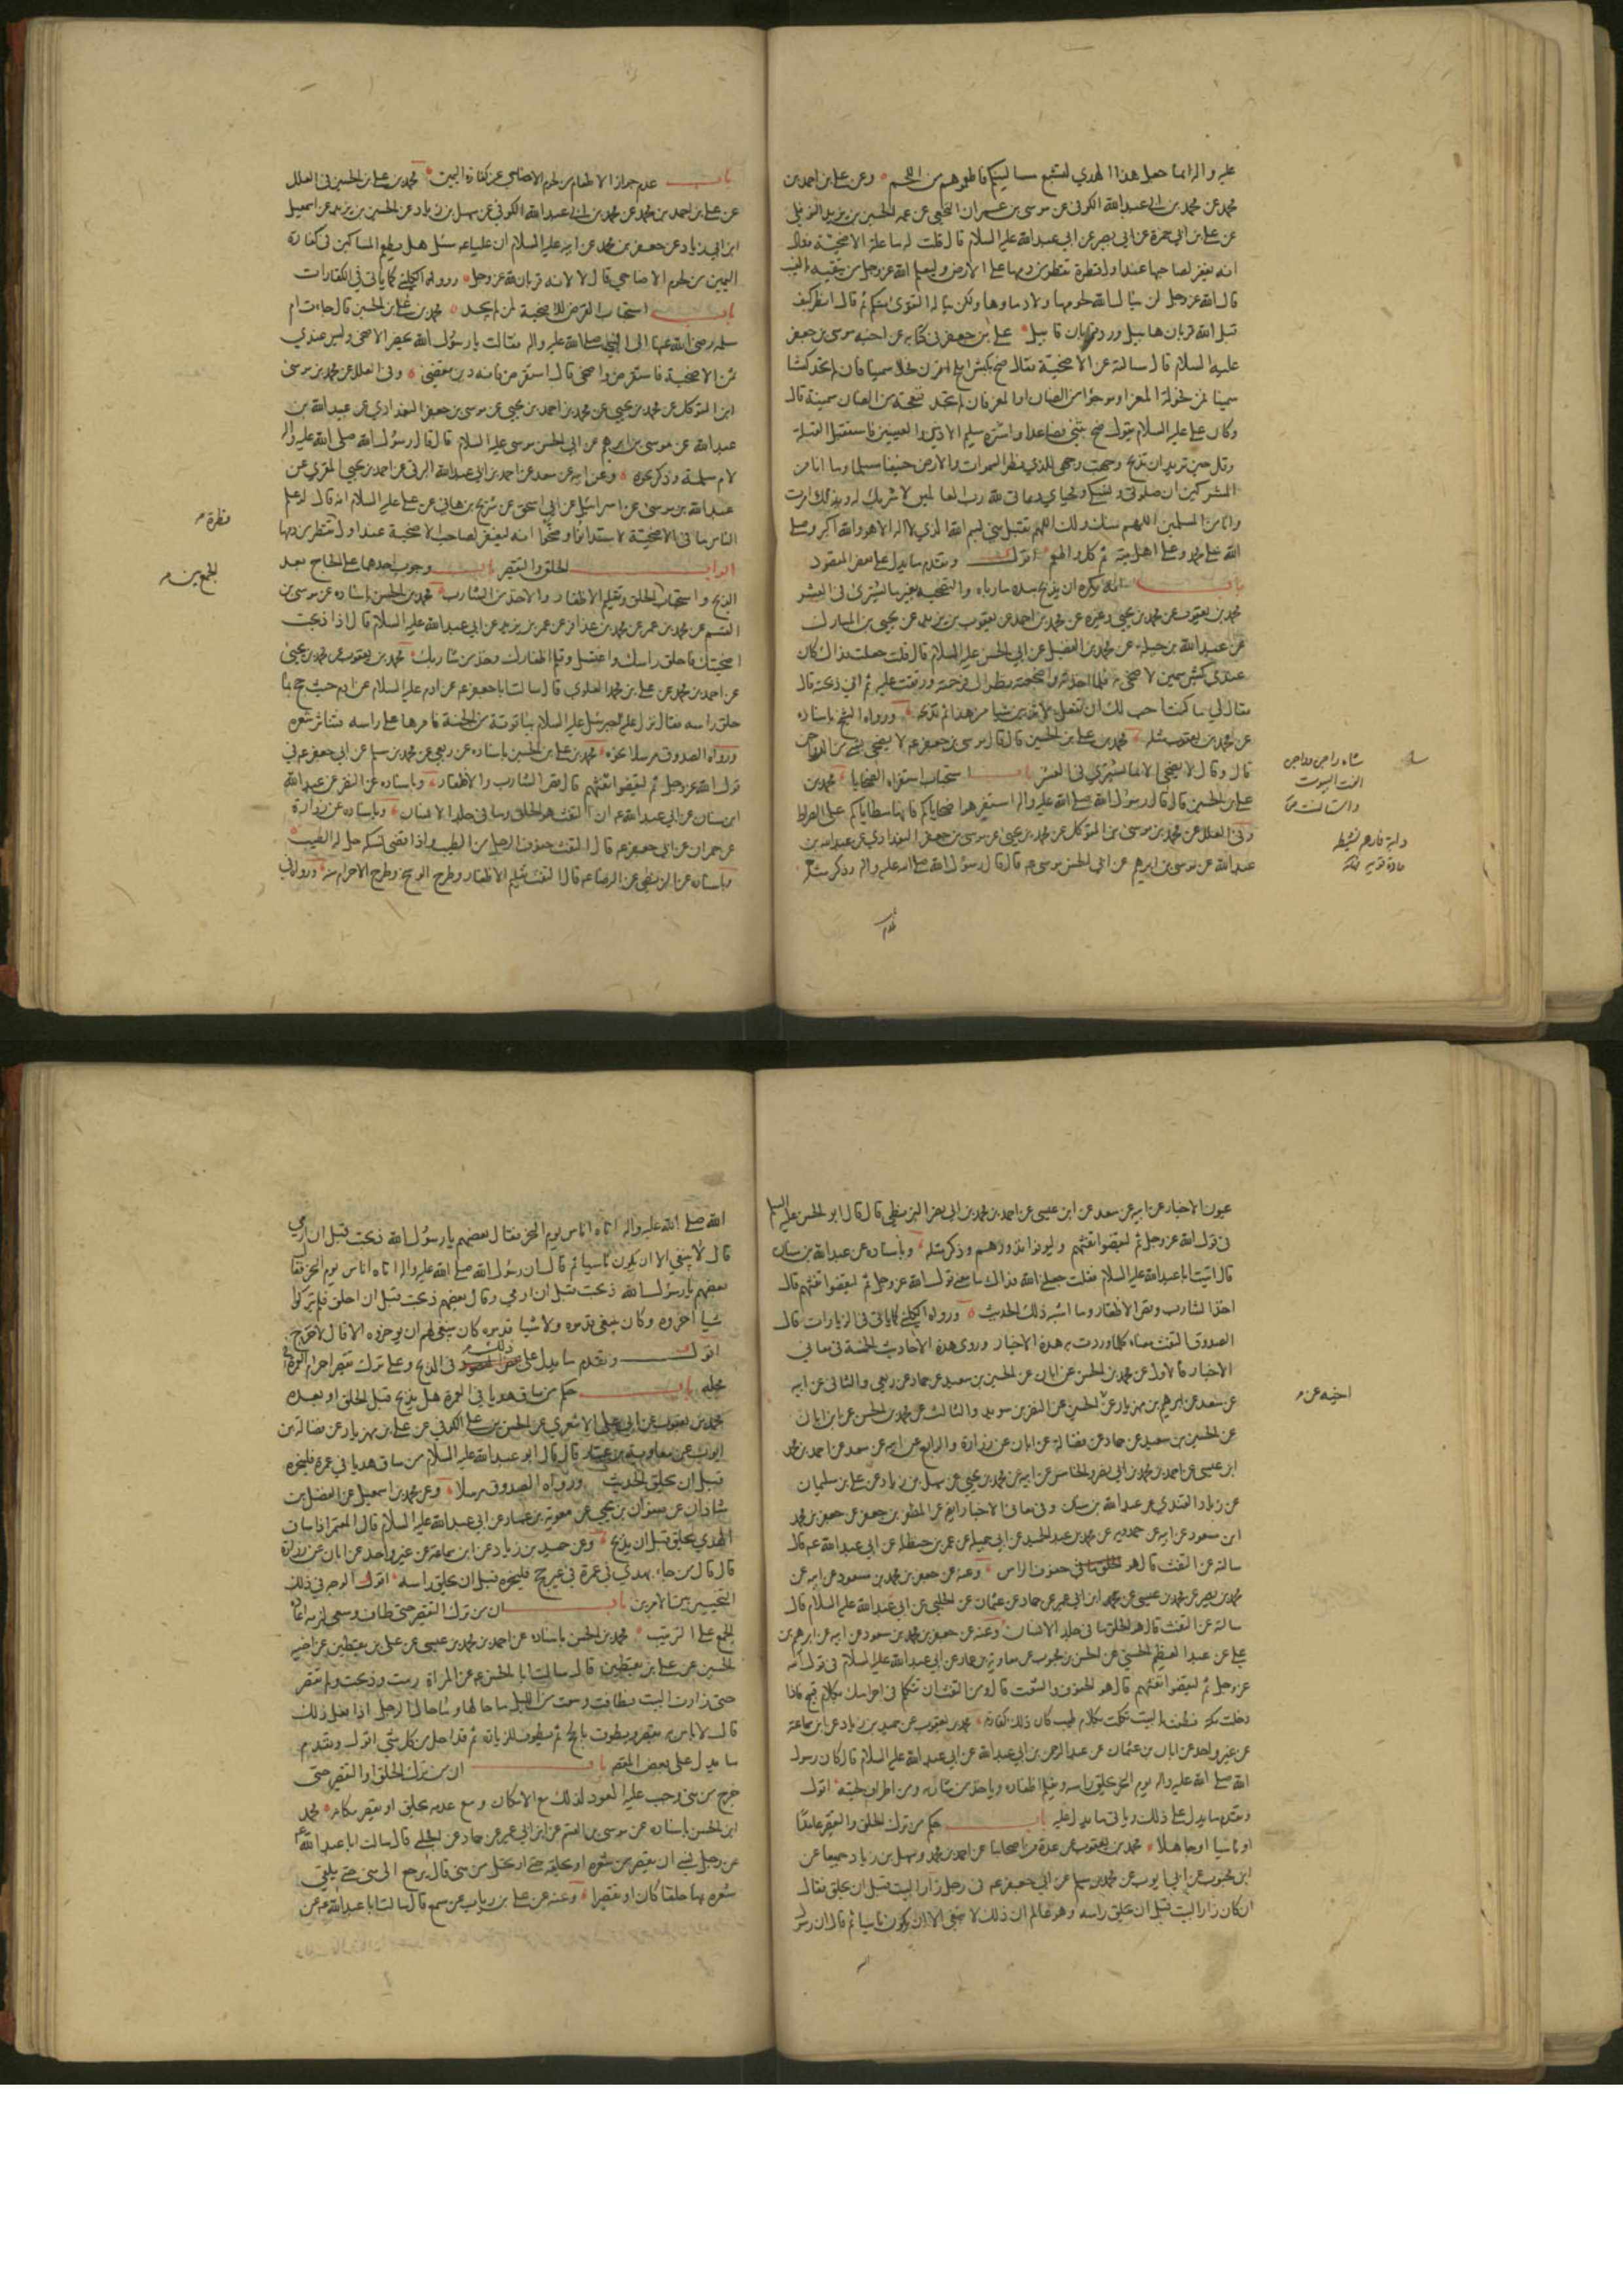 عليه واله انما جعل هذا الهدي لتشبع مساكينكم فاطعموهم من اللحم وعن علي بن احمد بن
محمد عن محمد بن ابي عبدالله الكوفي عن موسى بن عمران النخعي عن عمه الحسين بن يزيد النوفلي
عن علي بن ابي حمزة عن ابي بصير عن ابي عبدالله عليه السلام قال قلت له ما علة الاضحية فقال
انه يغفر لصاحبها عند اول قطرة تقطر من دمها على الارض وليعلم الله عزوجل من يتقيه بالغيب
قال الله عزوجل لن ينال الله لحومها ولا دماؤها ولكن يناله التقوى منكم ثم قال انظر كيف
قبل الله قربان هابيل ورد قربان قابيل علي بن جعفر في كتابه عن اخيه موسى بن جعفر
عليه السلام قال سالته عن الاضحية فقال ضح بكبش املح اقرن فحلا سمينا فان لم تجد كبشا
سمينا فمن فحولة المعز او موجوءا من الضان او المعز فان لم تجد فنعجة من الضان سمينة قال
وكان علي عليه السلام يقول ضح بثني فصاعدا واشتره سليم الاذنين والعينين فاستقبل القبلة
وقل حين تريد ان تذبح وجهت وجهي للذي فطر السموات والارض حنيفا مسلما وما انا من
المشركين ان صلوتي ونسكي ومحياي ومماتي لله رب العالمين لا شريك له وبذلك امرت
وانا من المسلمين اللهم منك ولك اللهم تقبل مني بسم الله الذي لا اله الا هو والله اكبر وصلى
الله على محمد وعلى اهل بيته ثم كل واطعم اقول وتقدم ما يدل على بعض المقصود
باب انه يكره ان يذبح بيده ما رباه والتضحية بغير ما يشترى في العشر
محمد بن يعقوب عن محمد بن يحيى وغيره عن محمد بن احمد عن يعقوب بن يزيد عن يحيى بن المبارك
عن عبدالله بن جبلة عن محمد بن الفضيل عن ابي الحسن عليه السلام قال قلت جعلت فداك كان
عندي كبش سمين لاضحي به فلما اخذته واضجعته نظر الي فرحمته ورققت عليه ثم اني ذبحته قال
فقال لي ما كنت احب لك ان تفعل لا تربين شيا من هذا ثم تذبحه ورواه الشيخ باسناده
عن محمد بن يعقوب مثله محمد بن علي بن الحسين قال قال موسى بن جعفر ع لا يضحى بشي من الدواجن
قال وقال لا يضحى الا بما يشترى في العشر باب استحباب استفراه الضحايا محمد بن
علي بن الحسين قال قال رسول الله صلى الله عليه واله استفرهوا ضحاياكم فانها مطاياكم على الصراط
وفي العلل عن محمد بن موسى بن المتوكل عن محمد بن يحيى عن موسى بن جعفر البغدادي عن عبدالله بن
عبدالله عن موسى بن ابرهيم عن ابي الحسن موسى ع قال قال رسول الله صلى الله عليه واله وذكر مثله
شاة راجن وداجن
الفت البيوت
دابة فارهة نشيطة
باب عدم جواز الاطعام من لحوم الاضاحي عن كفارة اليمين محمد بن علي بن الحسين في العلل
عن علي بن احمد بن محمد عن محمد بن ابي عبدالله الكوفي عن سهل بن زياد عن الحسين بن يزيد عن اسمعيل
ابن ابي زياد عن جعفر بن محمد عن ابيه عليه السلام ان عليا ع سئل هل يطعم المساكين في كفارة
اليمين من لحوم الاضاحي قال لا لانه قربان لله عزوجل ورواه الكليني كما ياتي في الكفارات
باب استحباب القرض للاضحية لمن لم يجد محمد بن علي بن الحسين قال جاءت ام
سلمة رضي الله عنها الى النبي صلى الله عليه واله فقالت يا رسول الله يحضر الاضحى وليس عندي
ثمن الاضحية فاستقرض واضحي قال استقرضي فانه دين مقضي وفي العلل عن محمد بن موسى
ابن المتوكل عن محمد بن يحيى عن محمد بن احمد بن يحيى عن موسى بن جعفر البغدادي عن عبيدالله بن
عبدالله عن موسى بن ابرهيم عن ابي الحسن موسى عليه السلام قال قال رسول الله صلى الله عليه واله
لام سلمة وذكر نحوه وعن ابيه عن سعد عن احمد بن ابي عبدالله البرقي عن احمد بن يحيى المقري عن
عبدالله بن موسى عن اسرائيل عن ابي اسحق عن شريح بن هاني عن علي عليه السلام انه قال لو علم
الناس ما في الاضحية لاستدانوا وضحوا انه ليغفر لصاحب الاضحية عند اول تقطر من دمها
ابواب الحلق والتقصير باب وجوب احدهما على الحاج بعد
الذبح واستحباب الحلق وتقليم الاظفار والاخذ من الشارب محمد بن الحسن باسناده عن موسى بن
القسم عن محمد بن عمر عن محمد بن عذافر عن عمر بن يزيد عن ابي عبدالله عليه السلام قال اذا ذبحت
اضحيتك فاحلق راسك واغتسل وقلم اظفارك وخذ من شاربك محمد بن يعقوب عن محمد بن يحيى
عن احمد بن محمد عن علي بن محمد العلوي قال سالت ابا جعفر ع عن ادم عليه السلام عن ادم حيث حج بما
حلق راسه فقال نزل عليه جبرئيل عليه السلام بياقوتة من الجنة فامرها على راسه فتناثر شعره
ورواه الصدوق مرسلا نحوه محمد بن علي بن الحسين باسناده عن ربعي عن محمد بن مسلم عن ابي جعفر ع في
قول الله عزوجل ثم ليقضوا تفثهم قال قص الشارب والاظفار وباسناده عن النضر عن عبدالله
ابن سنان عن ابي عبدالله ع ان التفث هو الحلق وما في جلد الانسان وباسناده عن زرارة
عن حمران عن ابي جعفر ع قال التفث حفوف الرجل من الطيب واذا قضى نسكه حل له الطيب
وباسناده عن البزنطي عن الرضا ع قال التفث تقليم الاظفار وطرح الوسخ وطرح الاحرام عنه ورواه في
قطرة
الجمع بين
عيون الاخبار عن ابيه عن سعد عن ابن عيسى عن احمد بن محمد بن ابي نصر البزنطي قال قال ابو الحسن عليه السلام
في قول الله عزوجل ثم ليقضوا تفثهم وليوفوا نذورهم وذكر مثله وباسناده عن عبدالله بن سنان
قال اتيت ابا عبدالله عليه السلام فقلت جعلني الله فداك ما معنى قول الله عزوجل ثم ليقضوا تفثهم قال
اخذ الشارب وقص الاظفار وما اشبه ذلك الحديث ورواه الكليني كما ياتي في الزيارات قال
الصدوق التفث معناه كلما وردت به هذه الاخبار وروى هذه الاحاديث الخمسة في معاني
الاخبار فالاول عن محمد بن الحسن عن ابان عن الحسين بن سعيد عن حماد عن ربعي والثاني عن ابيه
عن سعد عن ابرهيم بن مهزيار عن الحسين عن النضر بن سويد والثالث عن محمد بن الحسن عن ابن ابان
عن الحسين بن سعيد عن حماد عن فضالة عن ابان عن زرارة والرابع عن ابيه عن سعد عن احمد بن محمد
ابن عيسى عن احمد بن محمد بن ابي نصر والخامس عن ابيه عن محمد بن يحيى عن سهل بن زياد عن علي بن سليمان
عن زياد القندي عن عبدالله بن سنان وفي معاني الاخبار ايضا عن المظفر بن جعفر عن جعفر بن محمد
ابن مسعود عن ابيه عن حمدويه عن محمد بن عبدالحميد عن ابي جميلة عن عمر بن حنظلة عن ابي عبدالله ع قال
سالته عن التفث قال هو حفوف الراس وعنه عن جعفر بن محمد بن مسعود عن ابيه عن
محمد بن نصير عن محمد بن عيسى عن ابن ابي عمير عن حماد عن عثمان عن الحلبي عن ابي عبدالله عليه السلام قال
سالته عن التفث قال هو الحلق وما في جلد الانسان وعنه عن جعفر بن محمد بن مسعود عن ابيه عن ابرهيم بن
علي عن عبد العظيم الحسني عن الحسن بن محبوب عن معاوية بن عمار عن ابي عبدالله عليه السلام في قول الله
عزوجل ثم ليقضوا تفثهم قال هو الحفوف والشعث قال ومن التفث ان تتكلم في احرامك بكلام قبيح فاذا
دخلت مكة فطفت بالبيت تكلمت بكلام طيب كان ذلك كفارته محمد بن يعقوب عن حميد بن زياد عن ابن سماعة
عن غير واحد عن ابان بن عثمان عن عبدالرحمن بن ابي عبدالله عن ابي عبدالله عليه السلام قال كان رسول
الله صلى الله عليه واله يوم النحر يحلق راسه ويقلم اظفاره وياخذ من شاربه ومن اطراف لحيته اقول
وتقدم ما يدل على ذلك وياتي ما يدل عليه باب حكم من ترك الحلق والتقصير عامدا
او ناسيا او جاهلا محمد بن يعقوب عن عدة من اصحابنا عن احمد بن محمد وسهل بن زياد جميعا عن
ابن محبوب عن ابي ايوب عن محمد بن مسلم عن ابي جعفر ع في رجل زار البيت قبل ان يحلق فقال
ان كان زار البيت قبل ان يحلق راسه وهو عالم ان ذلك لا ينبغي الا ان يكون ناسيا ثم قال ان رسول
اخيه عن
الله صلى الله عليه واله اتاه اناس يوم النحر فقال بعضهم يا رسول الله ذبحت قبل ان ارمي
قال لا ينبغي الا ان يكون ناسيا ثم قال ان رسول الله صلى الله عليه واله اتاه اناس يوم النحر فقال
بعضهم يا رسول الله ذبحت قبل ان ارمي وقال بعضهم ذبحت قبل ان احلق فلم يتركوا
شيا اخروه وكان ينبغي تقديمه ولا شيا قدموه كان ينبغي لهم ان يؤخروه الا قال لا حرج
اقول وتقدم ما يدل على ذلك في الذبح وعلى ترك تقصير احرام العمرة في
محله باب حكم من ساق هديا في العمرة هل يذبح قبل الحلق او بعده
محمد بن يعقوب عن ابي علي الاشعري عن الحسن بن علي الكوفي عن علي بن مهزيار عن فضالة بن
ايوب عن معاوية بن عمار قال قال ابو عبدالله عليه السلام من ساق هديا في عمرة فلينحره
قبل ان يحلق الحديث ورواه الصدوق مرسلا وعن محمد بن اسمعيل عن الفضل بن
شاذان عن صفوان بن يحيى عن معوية بن عمار عن ابي عبدالله عليه السلام قال المعتمر اذا ساق
الهدي يحلق قبل ان يذبح وعن حميد بن زياد عن ابن سماعة عن غير واحد عن ابان عن زرارة
قال قال من جاء بهدي في عمرة في غير حج فلينحره قبل ان يحلق راسه اقول الوجه في ذلك
التخيير بين الامرين باب ان من ترك التقصير حتى طاف وسعى لزمه اعادة
الجمع على الترتيب محمد بن الحسن باسناده عن احمد بن محمد بن عيسى عن علي بن يقطين عن اخيه
الحسين عن علي بن يقطين قال سالت ابا الحسن ع عن المراة رمت وذبحت ولم تقصر
حتى زارت البيت فطافت وسعت من الليل ما حالها وما حال الرجل اذا فعل ذلك
قال لا باس به يقصر ويطوف بالحج ثم يطوف للزيارة ثم قد احل من كل شي اقول وتقدم
ما يدل على بعض المقصود باب ان من ترك الحلق او التقصير حتى
خرج من منى وجب عليه العود لذلك مع الامكان ومع عدمه يحلق او يقصر مكانه محمد
ابن الحسن باسناده عن موسى بن القسم عن ابن ابي عمير عن حماد عن الحلبي قال سالت ابا عبدالله ع
عن رجل نسي ان يقصر من شعره او يحلقه حتى ارتحل من منى قال يرجع الى منى حتى يلقي
شعره بها حلقا كان او تقصيرا وعنه عن علي بن رياب عن مسمع قال سالت ابا عبدالله ع عن